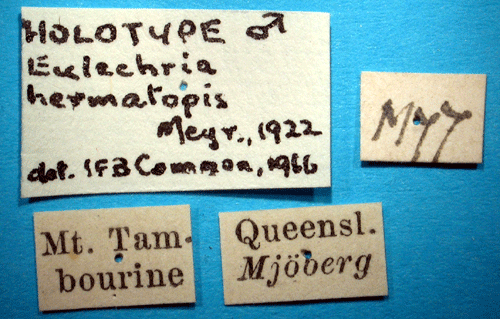 HOLOTYPE ♂
Eulechria
hermatopis
Meyr., 1922
det. IFB Common, 1966
Mt. Tam-
bourine
Queensl.
Mjöberg